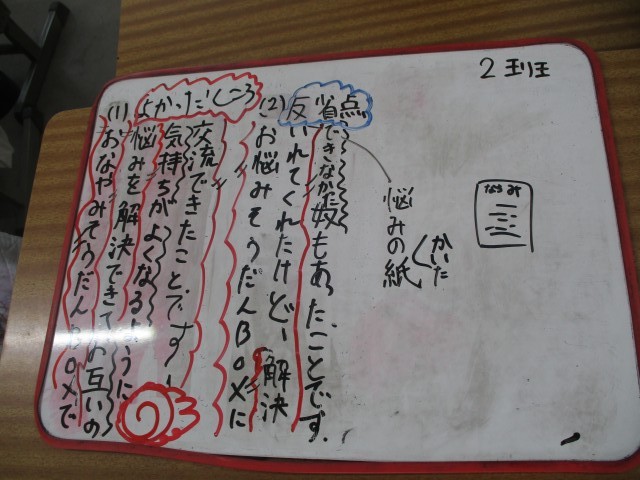 2班
よかったところ
(1)おなやみそうだんBOXで
悩みを解決できてお互いの
気持ちがよくなるように
交流できたことです!
反省点
(2)お悩みそうだんBOXに
いれてくれたけどー解決
できなかった奴もあったことです.
かいた
悩みの紙
なやみ